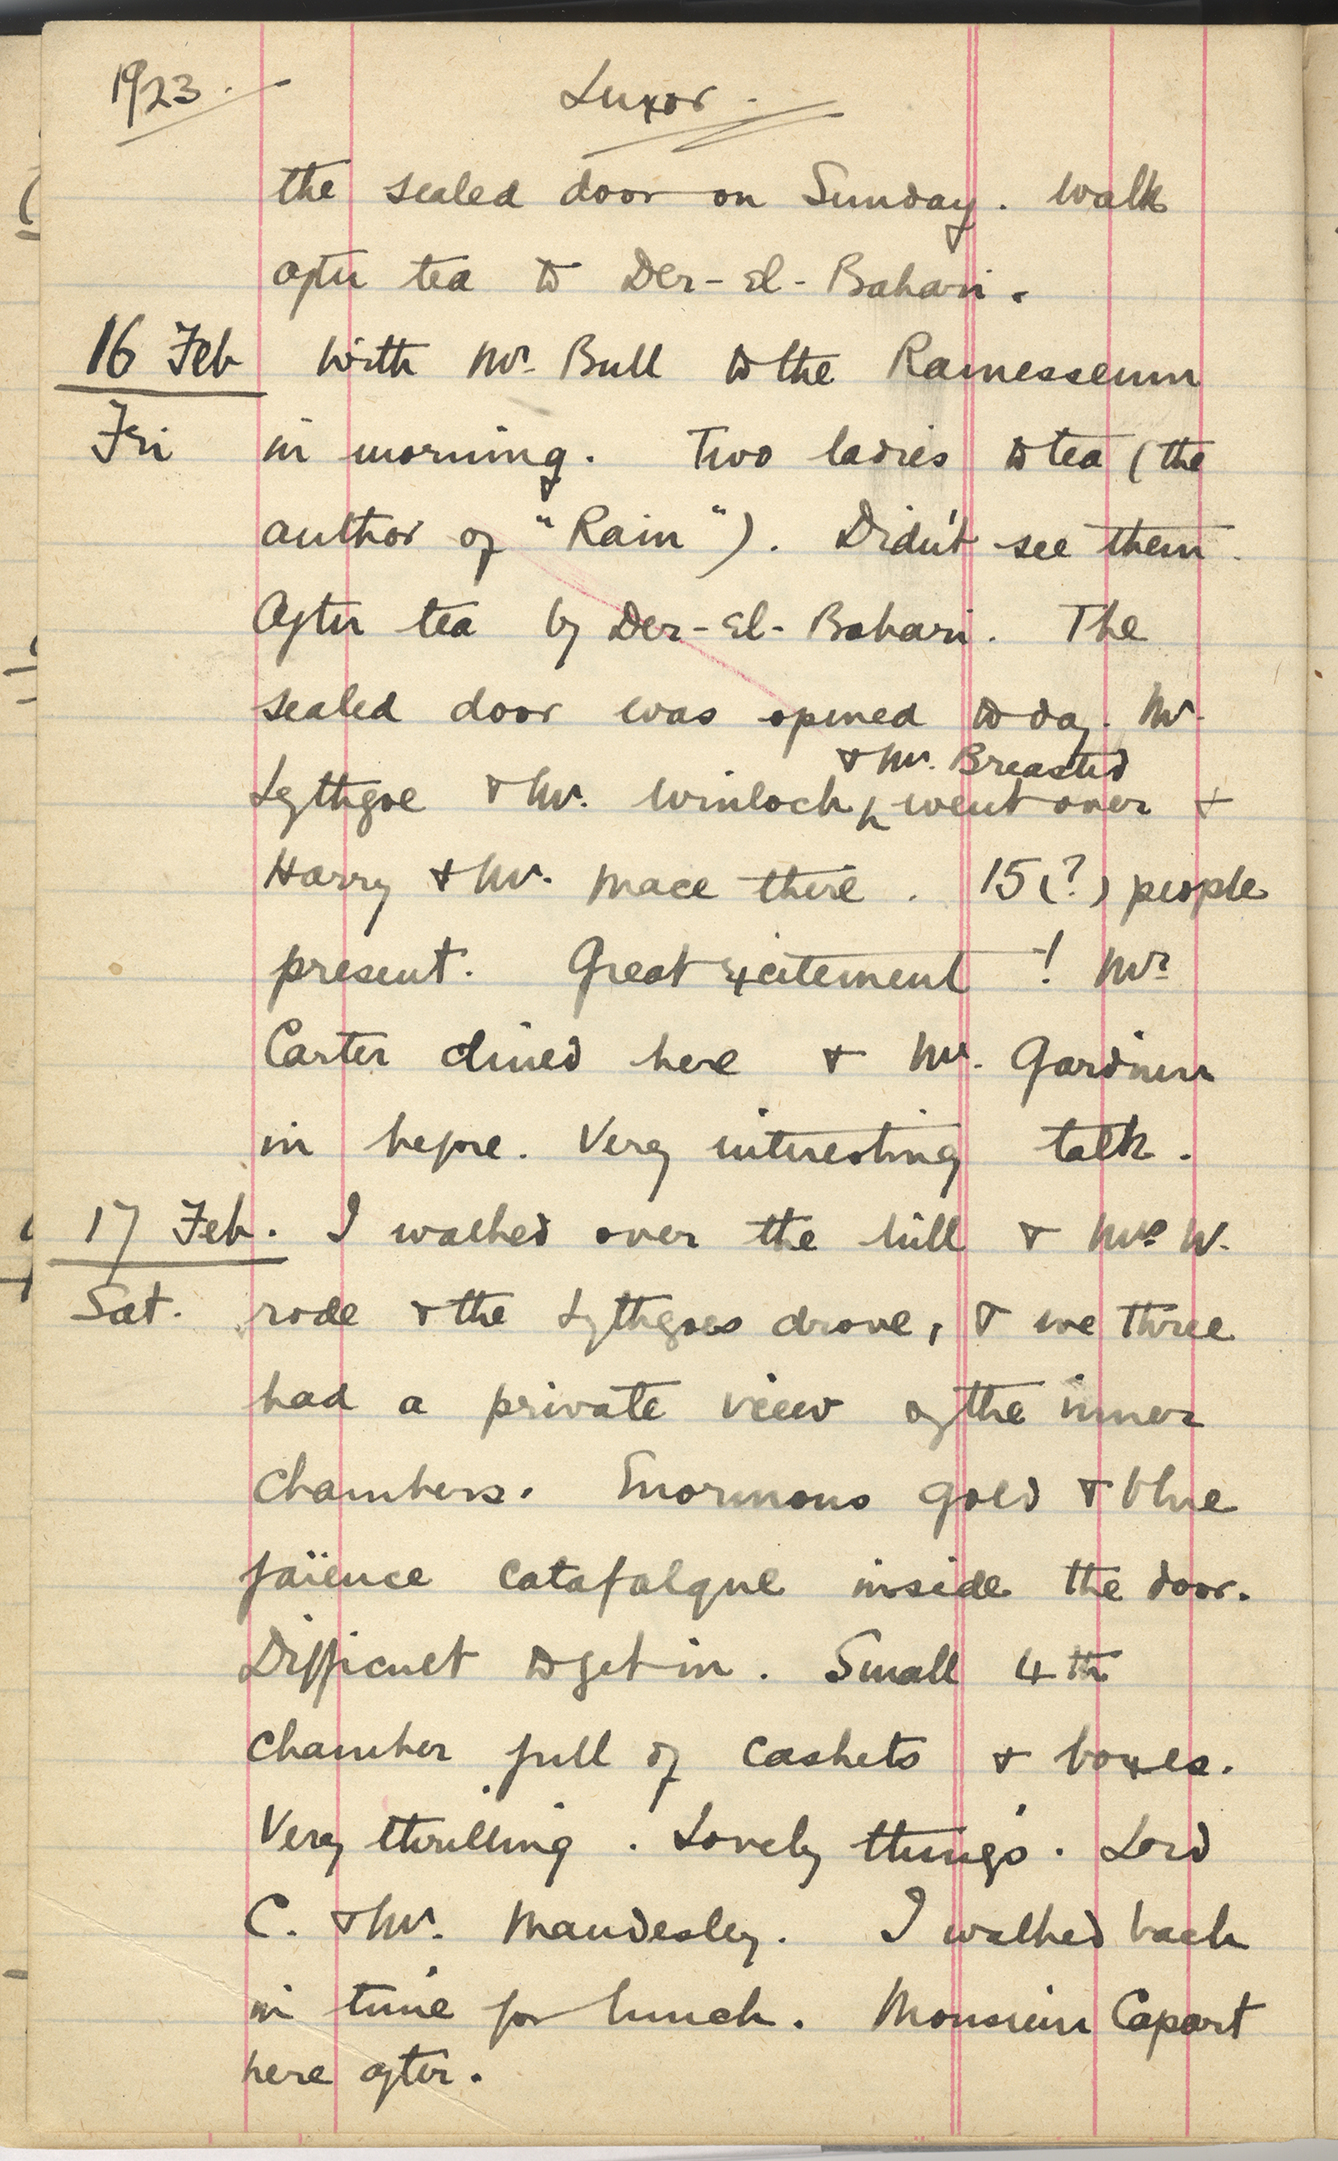 1923. Luxor.
the sealed door on Sunday. Walk
after tea to Der-El-Bahari.
16 Feb With Mr. Bull to the Ramesseum
Fri in morning. Two ladies to tea (the
author of "Rain"). Didn't see them.
After tea by Der-El-Bahari. The
sealed door was opened to day. Mr.
& Mr. Breasted
Lythgoe & Mr. Winlock ^ went over &
Harry & Mr. Mace there. 15(?) people
present. Great excitement! Mr
Carter dined here & Mr. Gardiner
in before. Very interesting talk.
17 Feb. I walked over the hill & Mrs W.
Sat. rode & the Lythgoes drove, & we three
had a private view of the inner
chambers. Enormous gold & blue
faïence catafalque inside the door.
Difficult to get in. Small 4th
chamber full of caskets & boxes.
Very thrilling. Lovely things. Lord
C. & Mr. Maudesley. I walked back
in time for lunch. Monsieur Capart
here after.